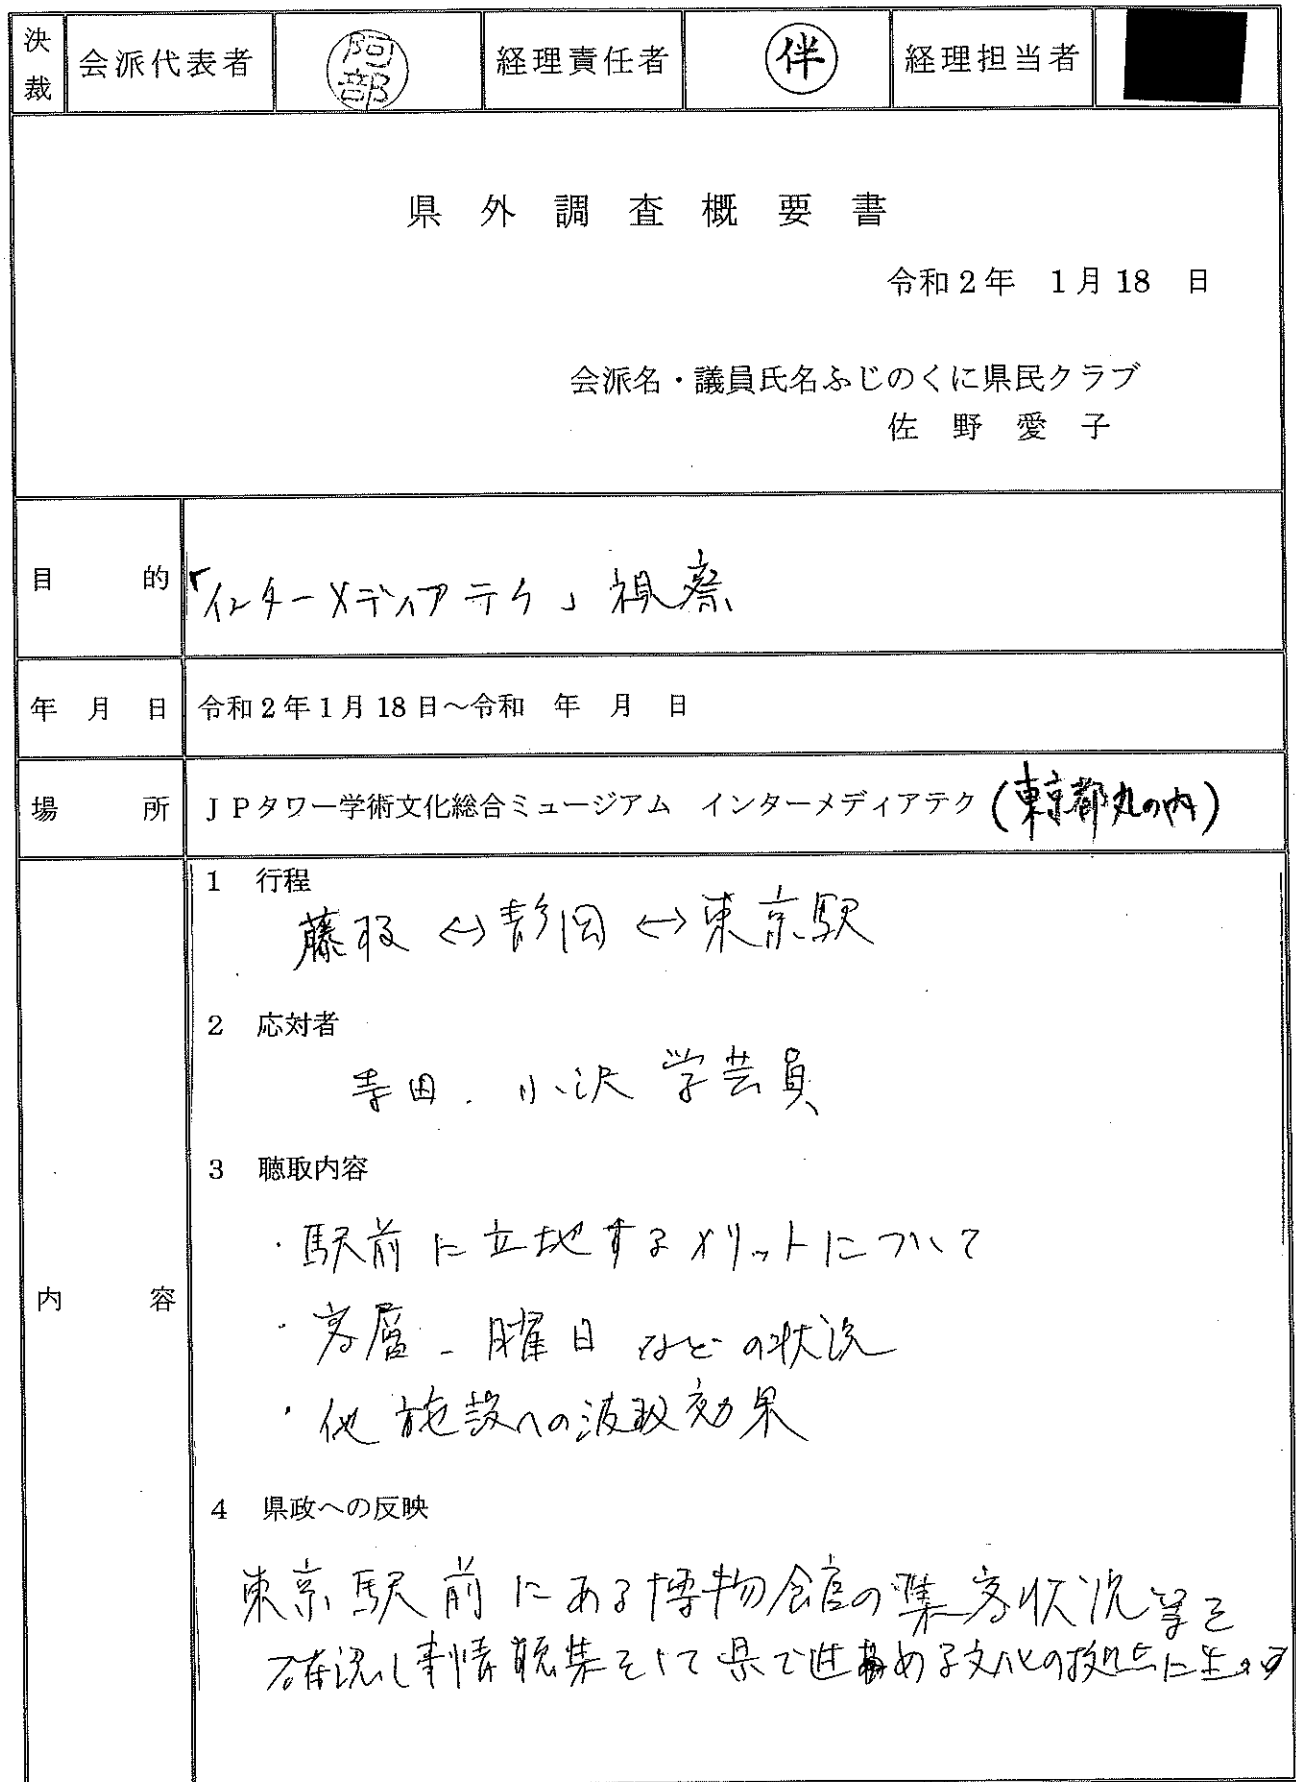 決裁 会派代表者 阿部 経理責任者 伴 経理担当者
県外調査概要書
令和2年 1月18 日
会派名・議員氏名ふじのくに県民クラブ
佐野愛子
目的 「インターメディアテク」視察
年月日 令和2年1月18日～令和 年 月 日
場所 JPタワー学術文化総合ミュージアム インターメディアテク(東京都丸の内)
内容
1 行程
藤枝↔静岡↔東京駅
2 応対者
寺田．小沢 学芸員
3 聴取内容
・駅前に立地するメリットについて
・客層－曜日などの状況
・他施設への波及効果
4 県政への反映
東京駅前にある博物館の集客状況等を
確認し事情聴集をして県で進める文化の拠点に生かす